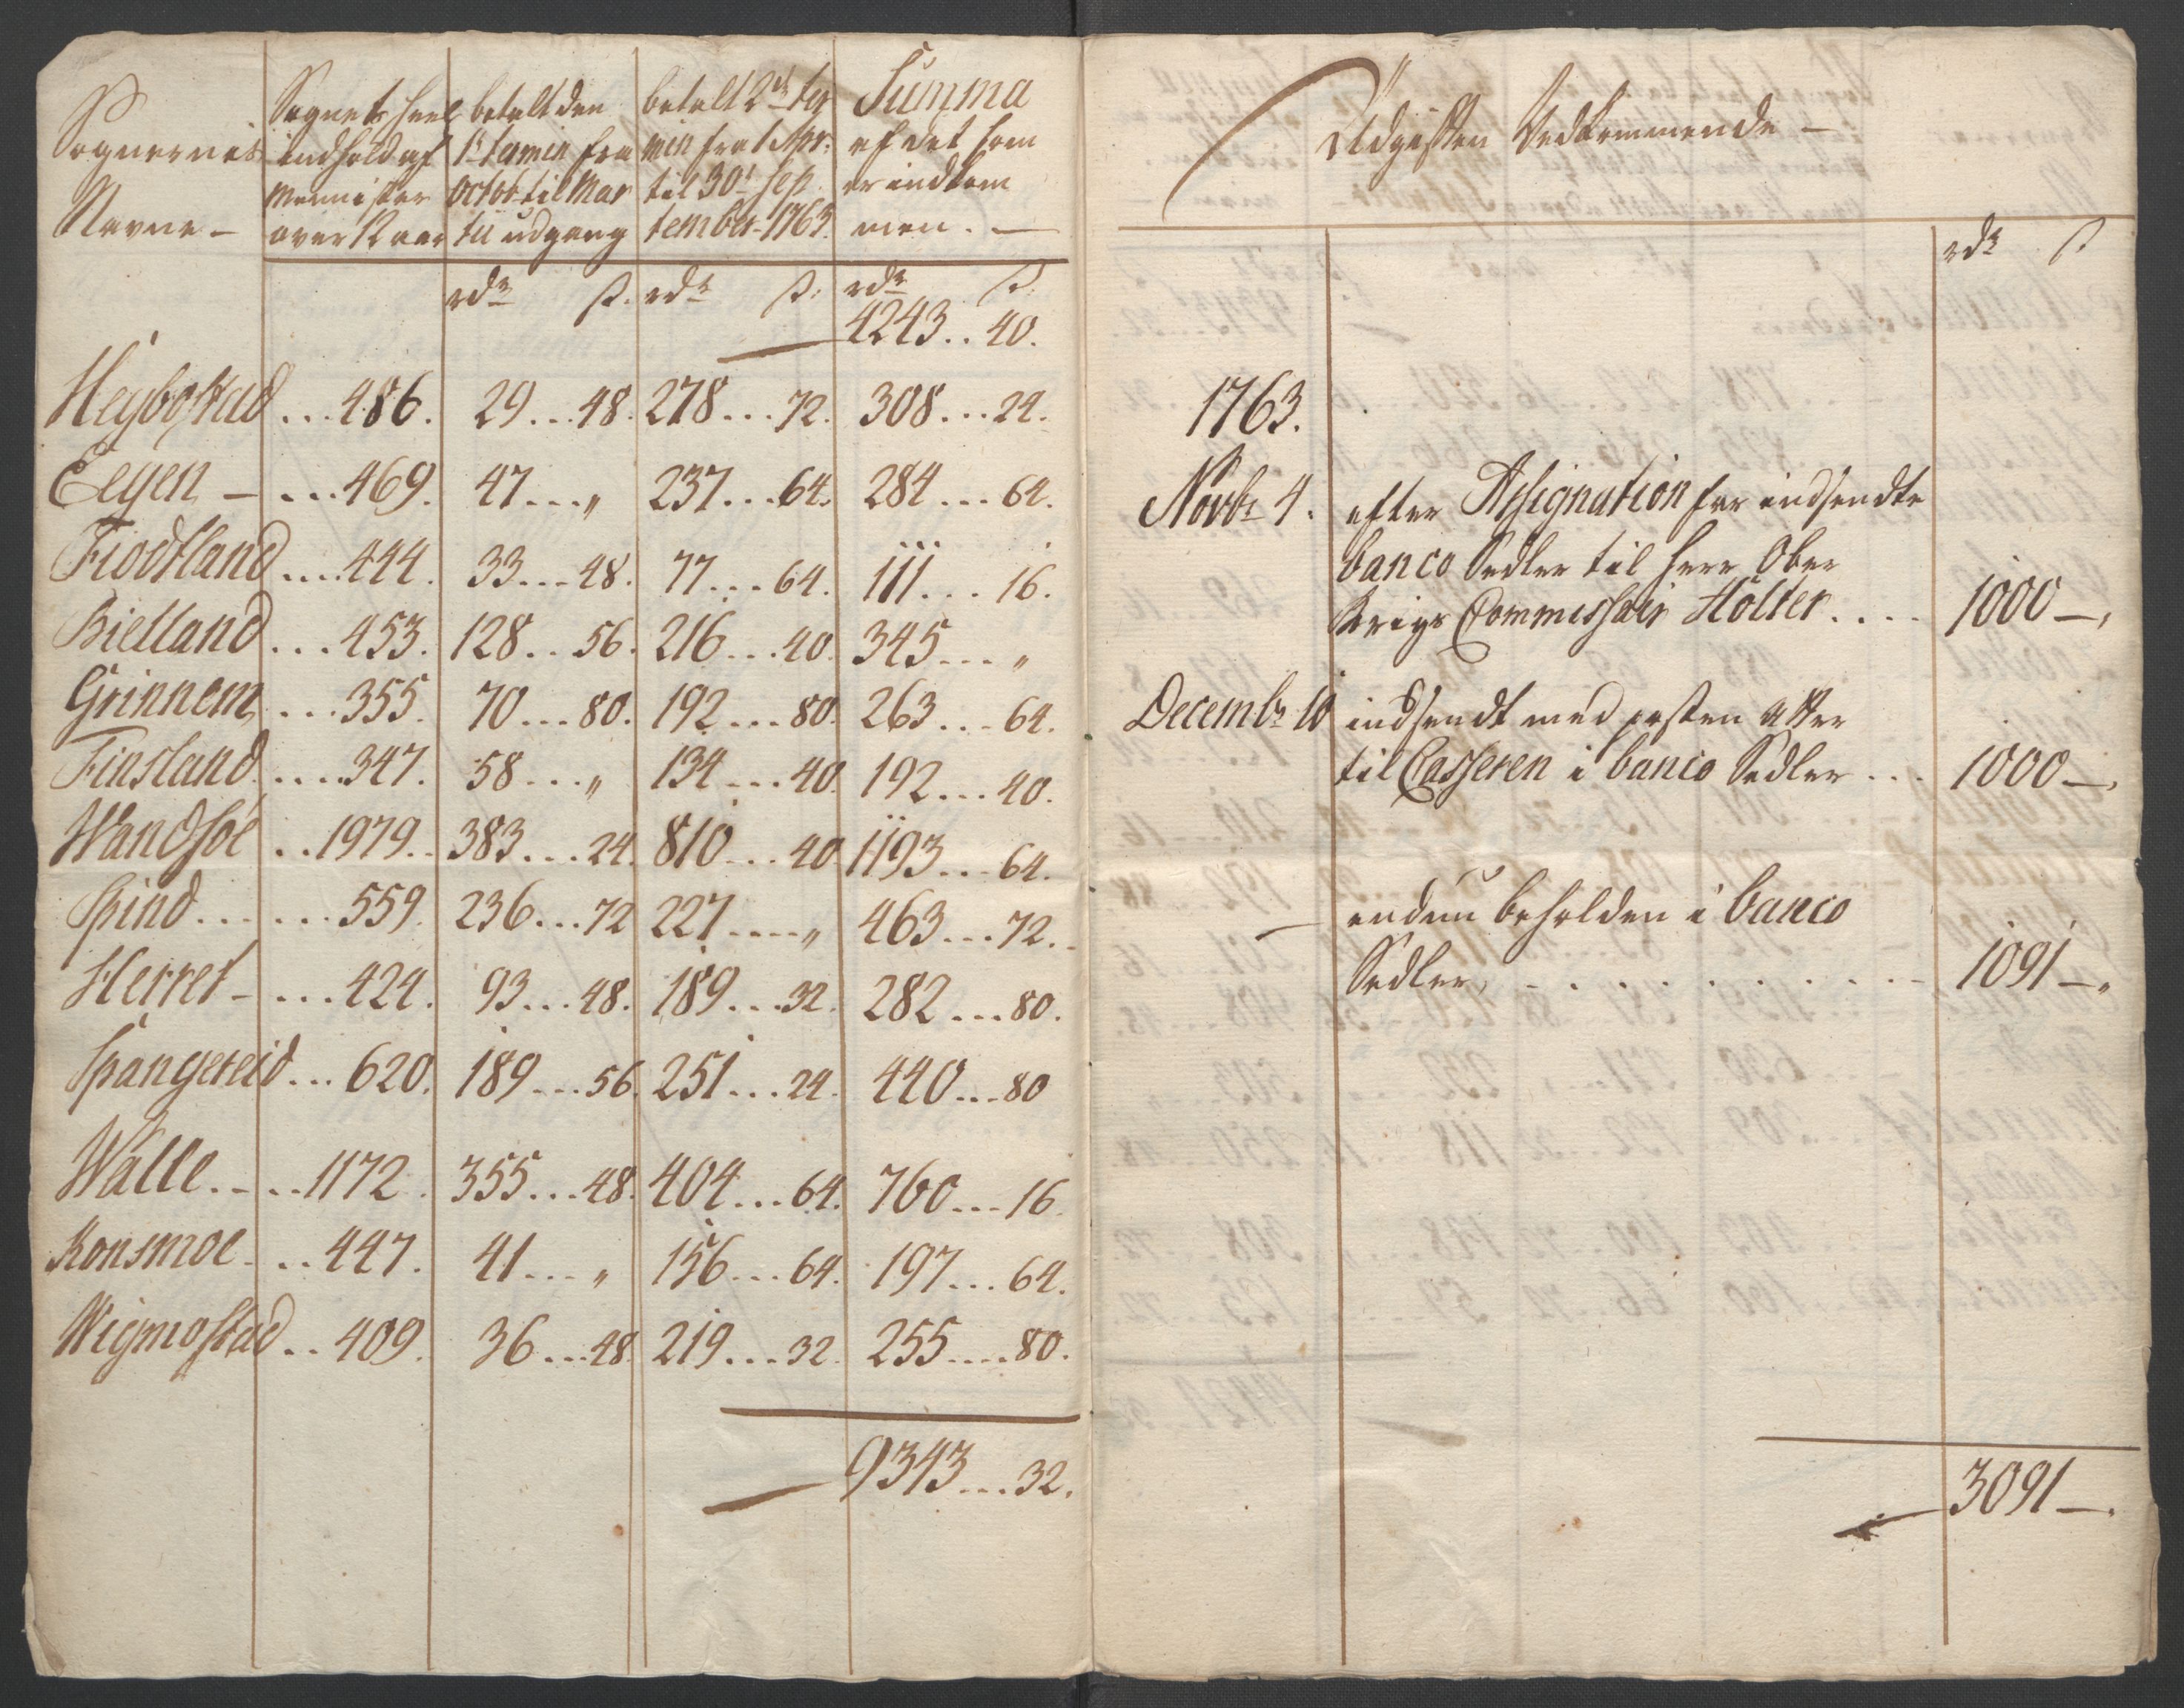 Sognernis Navne —
Sognets heel indhold af Mennisker over 12 aar
betalt den 1ᵗ termin fra octob: til Martii udgang
betalt 2ᵈ termin fra 1 Apr: til 30ᵗ September 1763.
Summa af det som er indkommen. —
rdʳ ß. rdʳ ß. rdʳ ß.
4243 .. 40.
Heybostad ... 486. 29 ... 48. 278 ... 72. 308 ... 24.
Eegen — ... 469. 47 ... „ 237 ... 64. 284 ... 64.
Fiodtland .... 444. 33 ... 48. 77 ... 64. 111 ... 16.
Bielland ... 453. 128 .. 56. 216 ... 40. 345 ... „
Grinnem ... 355. 70 ... 80. 192 ... 80. 263 ... 64.
Finsland .... 347. 58 ... „ 134 ... 40. 192 ... 40.
Wandsöe .. 1979 .. 383 ... 24. 810 ... 40 1193 ... 64.
Spind ... ... 559. 236 ... 72 227 .... „ 463 ... 72.
Herret — ... 424. 93 ... 48. 189 ... 32. 282 ... 80.
Spangereid ... 620. 189 ... 56. 251 ... 24. 440 ... 80
Walle .. .. 1172. 355 ... 48. 404 ... 64. 760 ... 16.
Konsmoe .. 447. 41 ... „ 156 ... 64. 197 ... 64.
Wigmostad .. 409. 36 ... 48. 219 ... 32. 255 .... 80.
9343 ... 32.
Udgiften Vedkommende —
rdʳ ß
1763.
Novbʳ 4. efter Assignation for indsendte
banco Sedler til Herr Ober
Krigs Commissair Holter .... 1000 — „
Decembʳ 10 indsendt med posten atter
til Casseren i banco Sedler ... 1000 — „
— endnu beholden i banco
Sedler, . . . . . . . . . . 1091 — „
3091 — .